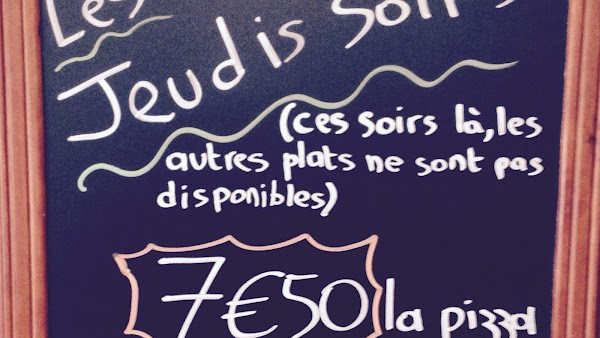 Les
Jeudis soirs
(ces soirs là, les
autres plats ne sont pas
disponibles)
7€50 la pizza